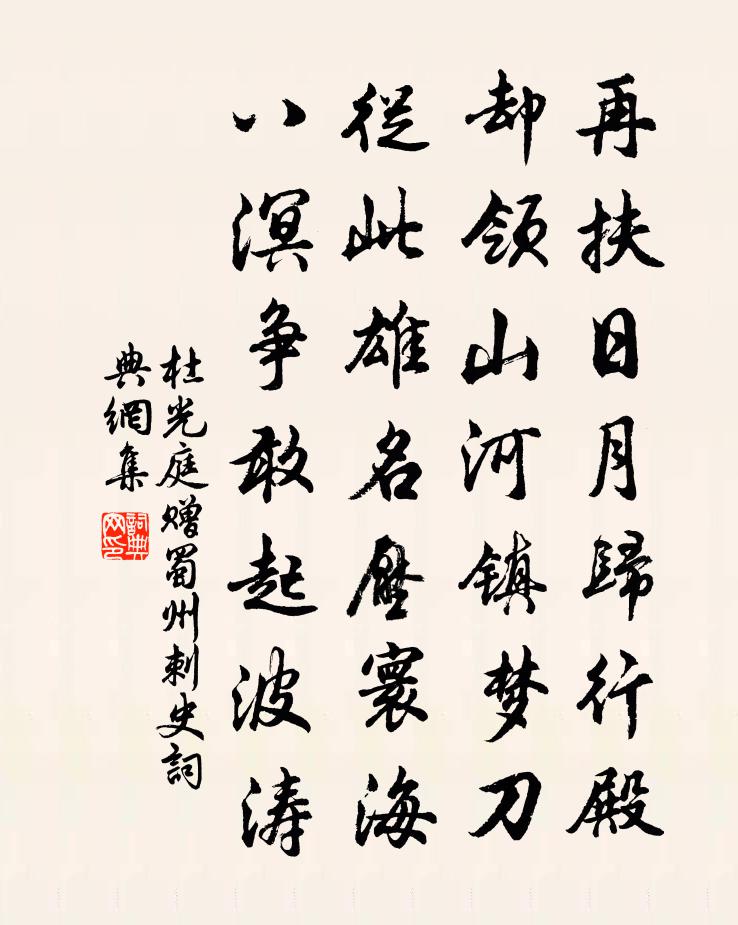 再扶日月歸行殿
却領山河鎮梦刀
從此雄名壓寰海
八溟爭敢起波涛
杜光庭赠蜀州刺史詞
典網集
詞典
网印